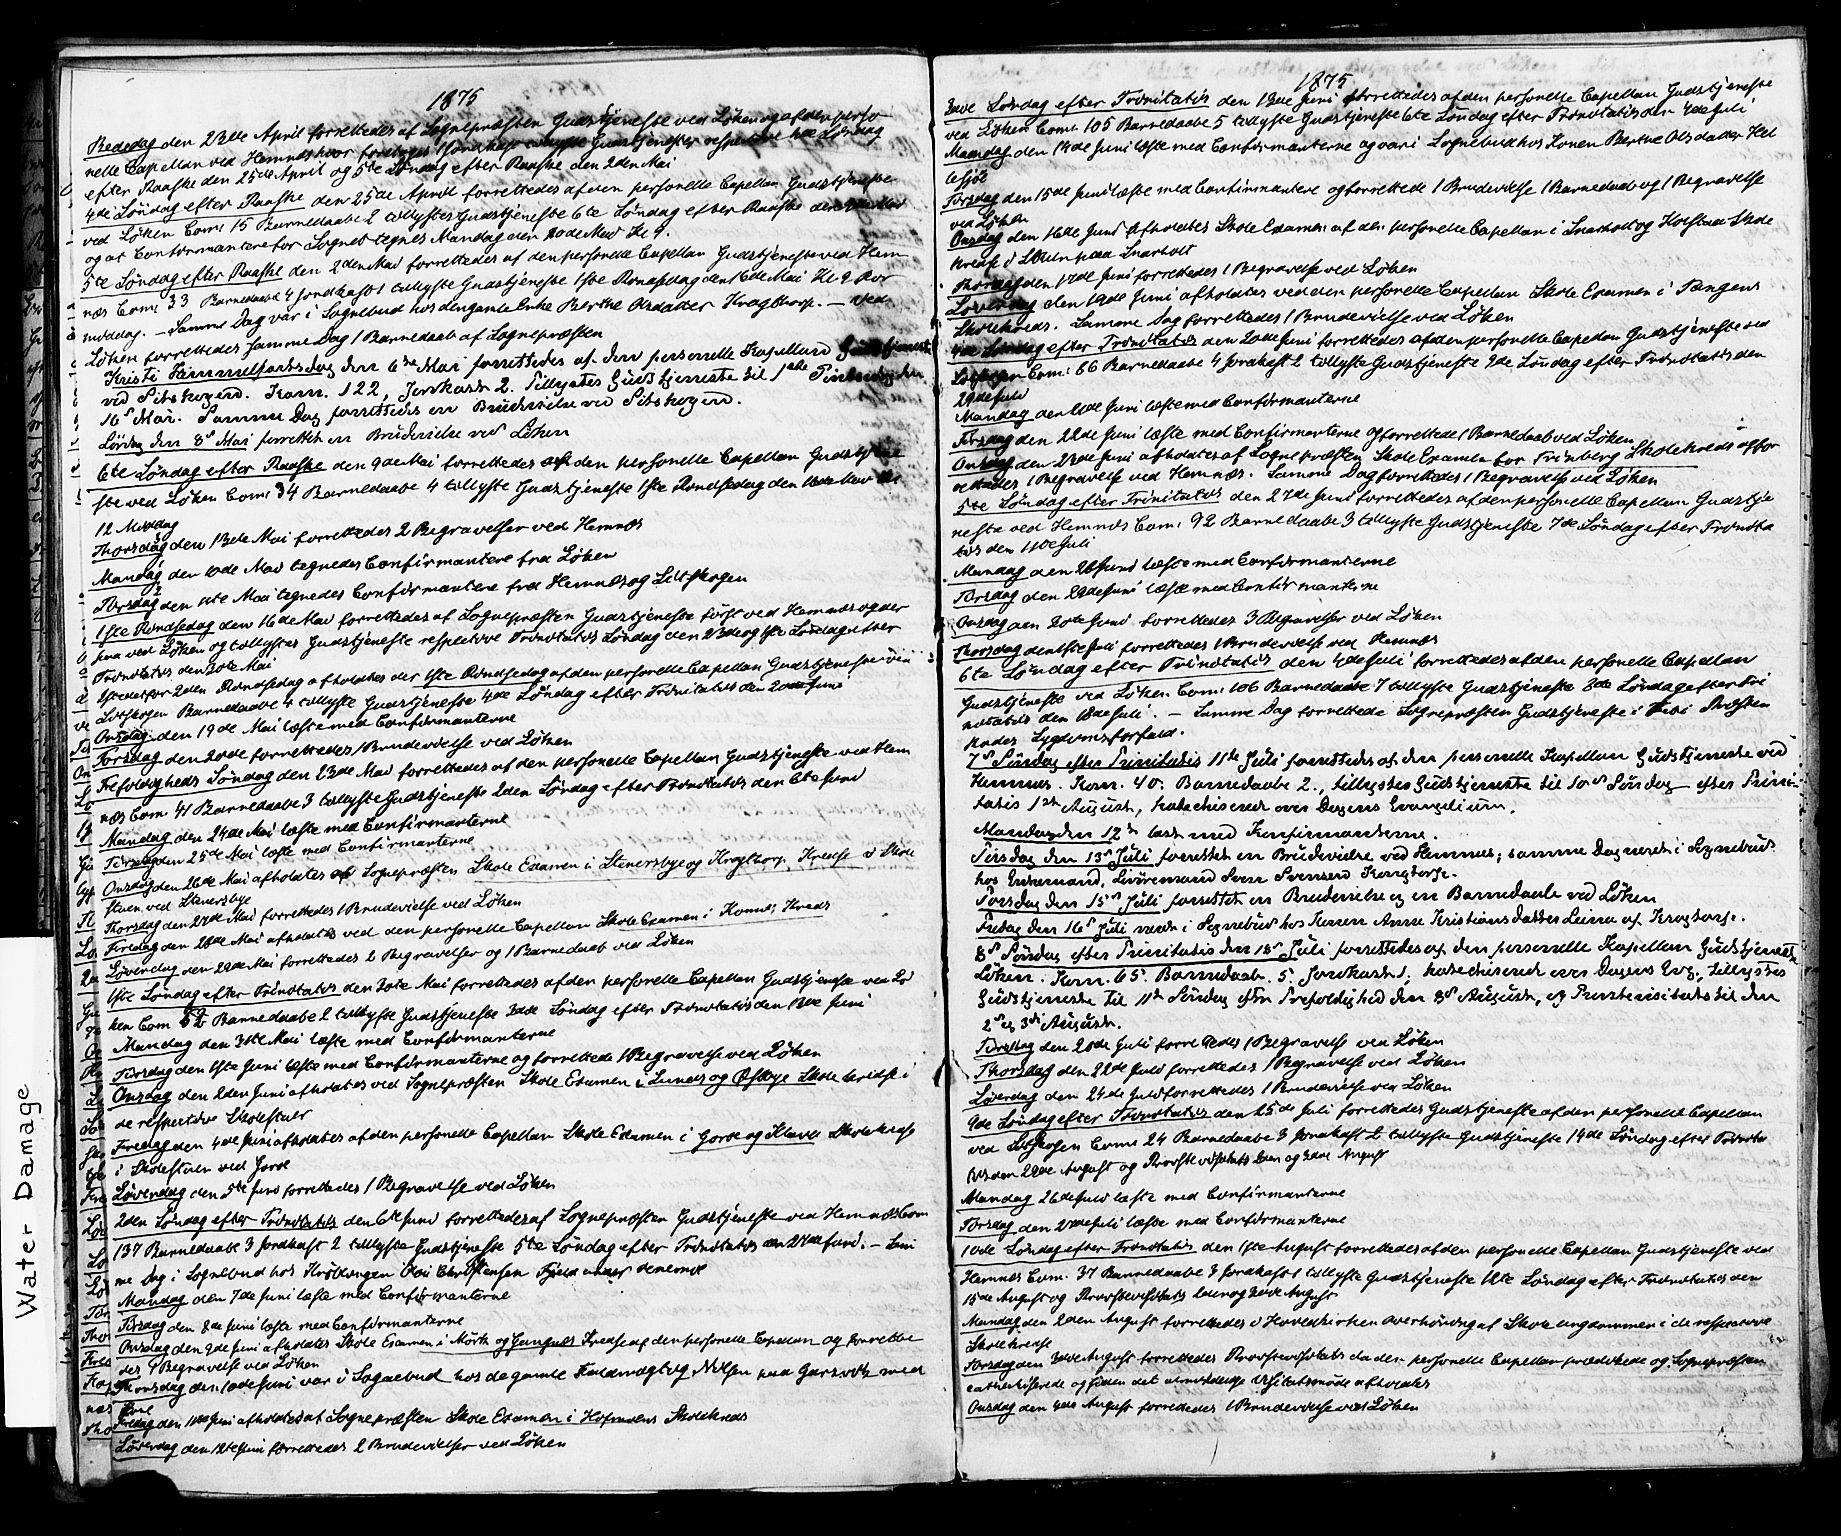 1875
Bededag den 23de April forrettedes af Sognepræsten Gudstjeneste ved Løken og af den perso
nelle Capellan ved Hemnæs hvor foretoges 1 Jordkast tillyste Gudstjenester respective 4de Løndag
efter Paaske den 25de April og 5te Løndag efter Paaske den 2den Mai
4de Løndag efter Paaske den 25de April forrettedes af den personelle Capellan Gudstjeneste
ved Løken Com: 15 Barnedaabe 2 tillystes Gudstjeneste 6te Løndag efter Paaske den 9de Mai
og at Confirmantere for Sognet tegnes Mandag den 10de Mai Kl 9.
5te Løndag efter Paaske den 2den Mai forrettedes af den personelle Capellan Gudstjeneste ved Hem
næs Com: 33 Barnedaabe 4 Jordkast 1 tillyste Gudstjeneste 1ste Pindsedag den 16de Mai Kl 9 For
middag. – Samme Dag var i Sognebud hos den gamle Enke Berthe Olsdatter Kragtorp. – Ved
Løken forrettedes samme Dag 1 Barnedaab af Sognepræsten
Kristi Himmelfartsdag den 6te Mai forrettedes af den personelle Kapellan Gudstjeneste
ved Sitskogen. Kom. 122, Jordkast 2. Tillystes Gudstjeneste til 1ste Pintsedag den
16de Mai. Samme Dag forrettedes en Brudevielse ved Sitskogen.
Lørdag den 8de Mai forrettet en Brudevielse ved Løken
6te Løndag efter Paaske den 9de Mai forrettedes af den personelle Capellan Gudstjene
ste ved Løken Com: 34 Barnedaabe 4 tillyste Gudstjeneste 1ste Pindsedag den 16de Mai Kl
12 Middag
Thorsdag den 13de Mai forrettedes 2 Begravelser ved Hemnæs
Mandag den 10de Mai tegnedes Confirmantere fra Løken
Tirsdag den 11te Mai tegnedes Confirmantere fra Hemnæs og Sitskogen
1ste Pindsedag den 16de Mai forrettedes af Sognepræsten Gudstjeneste først ved Hemnæs og der
paa ved Løken og tillystes Gudstjeneste respective Trinitatis Løndag den 23de og 1ste Løndag efter
Trinitatis den 30te Mai
Istedetfor 2den Pindsedag afholdtes der 1ste Pindsedag af den personelle Capellan Gudstjeneste ved
Sitskogen Barnedaabe 4 tillyste Gudstjeneste 4de Løndag efter Trinitatis den 20de Juni
Onsdag den 19de Mai læste med Confirmanterne
Torsdag den 20de forrettedes 1 Brudevielse ved Løken
Trefoldigheds Søndag den 23de Mai forrettedes af den personelle Capellan Gudstjeneste ved Hem
næs Com: 41 Barnedaabe 3 tillyste Gudstjeneste 2den Løndag efter Trinitatis den 6te Juni
Mandag den 24de Mai læste med Confirmanterne
Tirsdag den 25de Mai læste med Confirmanterne
Onsdag den 26de Mai afholdtes af Sognepræsten Skole Examen i Stenersbye og Kragtorp Kredse i Skole
stuen ved Stenersbye
Thorsdag den 27de Mai forrettedes 1 Brudevielse ved Løken
Fredag den 28de Mai afholdtes ved den personelle Capellan Skole Examen i Komnæs Kreds
Løverdag den 29de Mai forrettedes 2 Begravelser og 1 Barnedaab ved Løken
1ste Løndag efter Trinitatis den 30te Mai forrettedes af den personelle Capellan Gudstjeneste ved Lø
ken Com 52 Barnedaabe 2 tillyste Gudstjeneste 3die Søndag efter Trinitatis den 13de Juni
Mandag den 31te Mai læste med Confirmanterne
Tirsdag den 1ste Juni læste med Confirmanterne og forrettede 1 Begravelse ved Løken
Onsdag den 2den Juni afholdtes ved Sognepræsten Skole Examen i Lunds og Østbye Skole kredse i
de respective Skolestuer
Fredag den 4de Juni afholdtes af den personelle Capellan Skole Examen i Gorde og Klava Skolekreds
i Skolestuen ved Gorde
Løverdag den 5te Juni forrettedes 1 Begravelse ved Løken
2den Løndag efter Trinitatis den 6te Juni forrettedes af Sognepræsten Gudstjeneste ved Hemnæs Com
137 Barnedaabe 3 Jordkast 2 tillyste Gudstjeneste 5te Løndag efter Trinitatis den 27de Juni. – Sam
me Dag i Sognebud hos Christensen Fjeld under
Mandag den 7de Juni læste med Confirmanterne
Tirsdag den 8de Juni læste med Confirmanterne
Onsdag den 9de Juni afholdtes Skole Examen i Mørk og Kredse af den personelle Capellan og forrette
des 4 Begravelse ved Løken
Thorsdag den 10de Juni var i Sognebud hos de gamle Nilsen paa med
Kone
Fredag den 11te Juni afholdtes af Sognepræsten Skole Examen i Skolekreds
Løverdag den 12te Juni forrettedes 2 Brudevielser ved Løken
1875
3die Løndag efter Trinitatis den 13de Juni forrettedes af den personelle Capellan Gudstjeneste
ved Løken Com: 105 Barnedaabe 5 tillyste Gudstjeneste 6te Løndag efter Trinitatis den 4de Juli
Mandag den 14de Juni læste med Confirmanterne og var i Sognebud hos Konen Berthe Olsdatter Hel
lesjøe
Tirsdag den 15de Juni læste med Confirmantere og forrettede 1 Brudevielse 1 Barnedaab og 1 Begravelse
ved Løken
Onsdag den 16de Juni afholdtes Skole Examen af den personelle Capellan i Snarholt og Hofstad Skole
kredse i Skolen paa Snarholt
Thorsdag den 17de Juni forrettedes 1 Begravelse ved Løken
Løverdag den 19de Juni afholdtes ved den personelle Capellan Skole Examen i Tangens
Skolekreds. Samme Dag forrettedes 1 Brudevielse ved Løken
4de Løndag efter Trinitatis den 20de Juni forrettedes af den personelle Capellan Gudstjeneste ved
Sitskogen Com: 66 Barnedaabe 4 Jordkast 2 tillyste Gudstjeneste 9de Løndag efter Trinitatis den
Juli
Mandag den 21de Juni læste med Confirmanterne
Tirsdag den 22de Juni læste med Confirmanterne og forrettede 1 Barnedaab ved Løken
Onsdag den 23de Juni afholdtes af Sognepræsten Skole Examen for Frinberg Skolekreds og for
rettedes 1 Begravelse ved Hemnæs. Samme Dag forrettedes 1 Begravelse ved Løken
5te Løndag efter Trinitatis den 27de Juni forrettedes af den personelle Capellan Gudstje
neste ved Hemnæs Com: 92 Barnedaabe 3 tillyste Gudstjeneste 7de Løndag efter Trinita
tis den 11te Juli
Mandag den 28 Juni læste med Confirmanterne
Tirsdag den 29de Juni læste med Confirmanterne
Onsdag den 30te Juni forrettedes 3 Begravelser ved Løken
Thorsdag den 1ste Juli forrettedes 1 Brudevielse ved Hemnæs
6te Løndag efter Trinitatis den 4de Juli forrettedes af den personelle Capellan
Gudstjeneste ved Løken Com: 106 Barnedaabe 7 tillyste Gudstjeneste 8de Løndag efter Tri
nitatis den 18de Juli. – Samme Dag forrettede Sognepræsten Gudstjeneste i Præsten
Sygdomsforfald.
7de Søndag efter Trinitatis 11te Juli forrettedes af den personelle Kapellan Gudstjeneste ved
Hemnæs. Kom. 40. Barnedaabe 2., tillystes Gudstjeneste til 10de Søndag efter Trini
tatis 1ste August, katechiseret over Dagens Evangelium.
Mandag den 12te læst med Konfirmanterne.
Tirsdag den 13de Juli forrettet en Brudevielse ved Hemnæs; samme Dag været i Sognebud
hos Enkemand, Livøremand Sven Svensen Kragtorp.
Torsdag den 15de Juli forrettet en Brudevielse og en Barnedaab ved Løken
Fredag den 16de Juli været i Sognebud hos Konen Anne Kristiansdatter Leira af Kragtorp.
8de Søndag efter Trinitatis den 18de Juli forrettedes af den personelle Kapellan Gudstjeneste
Løken. Kom. 65. Barnedaab. 5. Jordkast 1, katechiseret over Dagens Evg. tillystes
Gudstjeneste til 11te Søndag efter Trefoldighed den 8de August, og Provstevisitats til den
2den og 3die August.
Tirsdag den 20de Juli forrettedes 1 Begravelse ved Løken
Thorsdag den 22de Juli forrettedes 1 Begravelse ved Løken
Løverdag den 24de Juli forrettedes 1 Brudevielse ved Løken
9de Løndag efter Trinitatis den 25de Juli forrettedes Gudstjeneste af den personelle Capellan
ved Sitskogen Com: 24 Barnedaabe 3 Jordkast 2 tillyste Gudstjeneste 14de Søndag efter Trinita
tis den 29de August og Provstevisitats 2den og 3die August
Mandag 26de Juli læste med Confirmanterne
Tirsdag den 27de Juli læste med Confirmanterne
10de Løndag efter Trinitatis den 1ste August forrettedes af den personelle Capellan Gudstjeneste ved
Hemnæs Com: 37 Barnedaabe 3 Jordkast 1 tillyste Gudstjeneste 12te Løndag efter Trinitatis den
15de August og Provstevisitats 2den og 3die August
Mandag den 2den August forrettedes i Hovedkirken Overhøring af Skoleungdommen i de respective
Skolekredse
Tirsdag den 3die August forrettedes Provstevisitats da den personelle Capellan prædikede og Sognepræsten
catherkiserede og siden det almindelige Visitatsmøde afholdtes
Onsdag den 4de August forrettedes 1 Brudevielse ved Løken
Water Damage